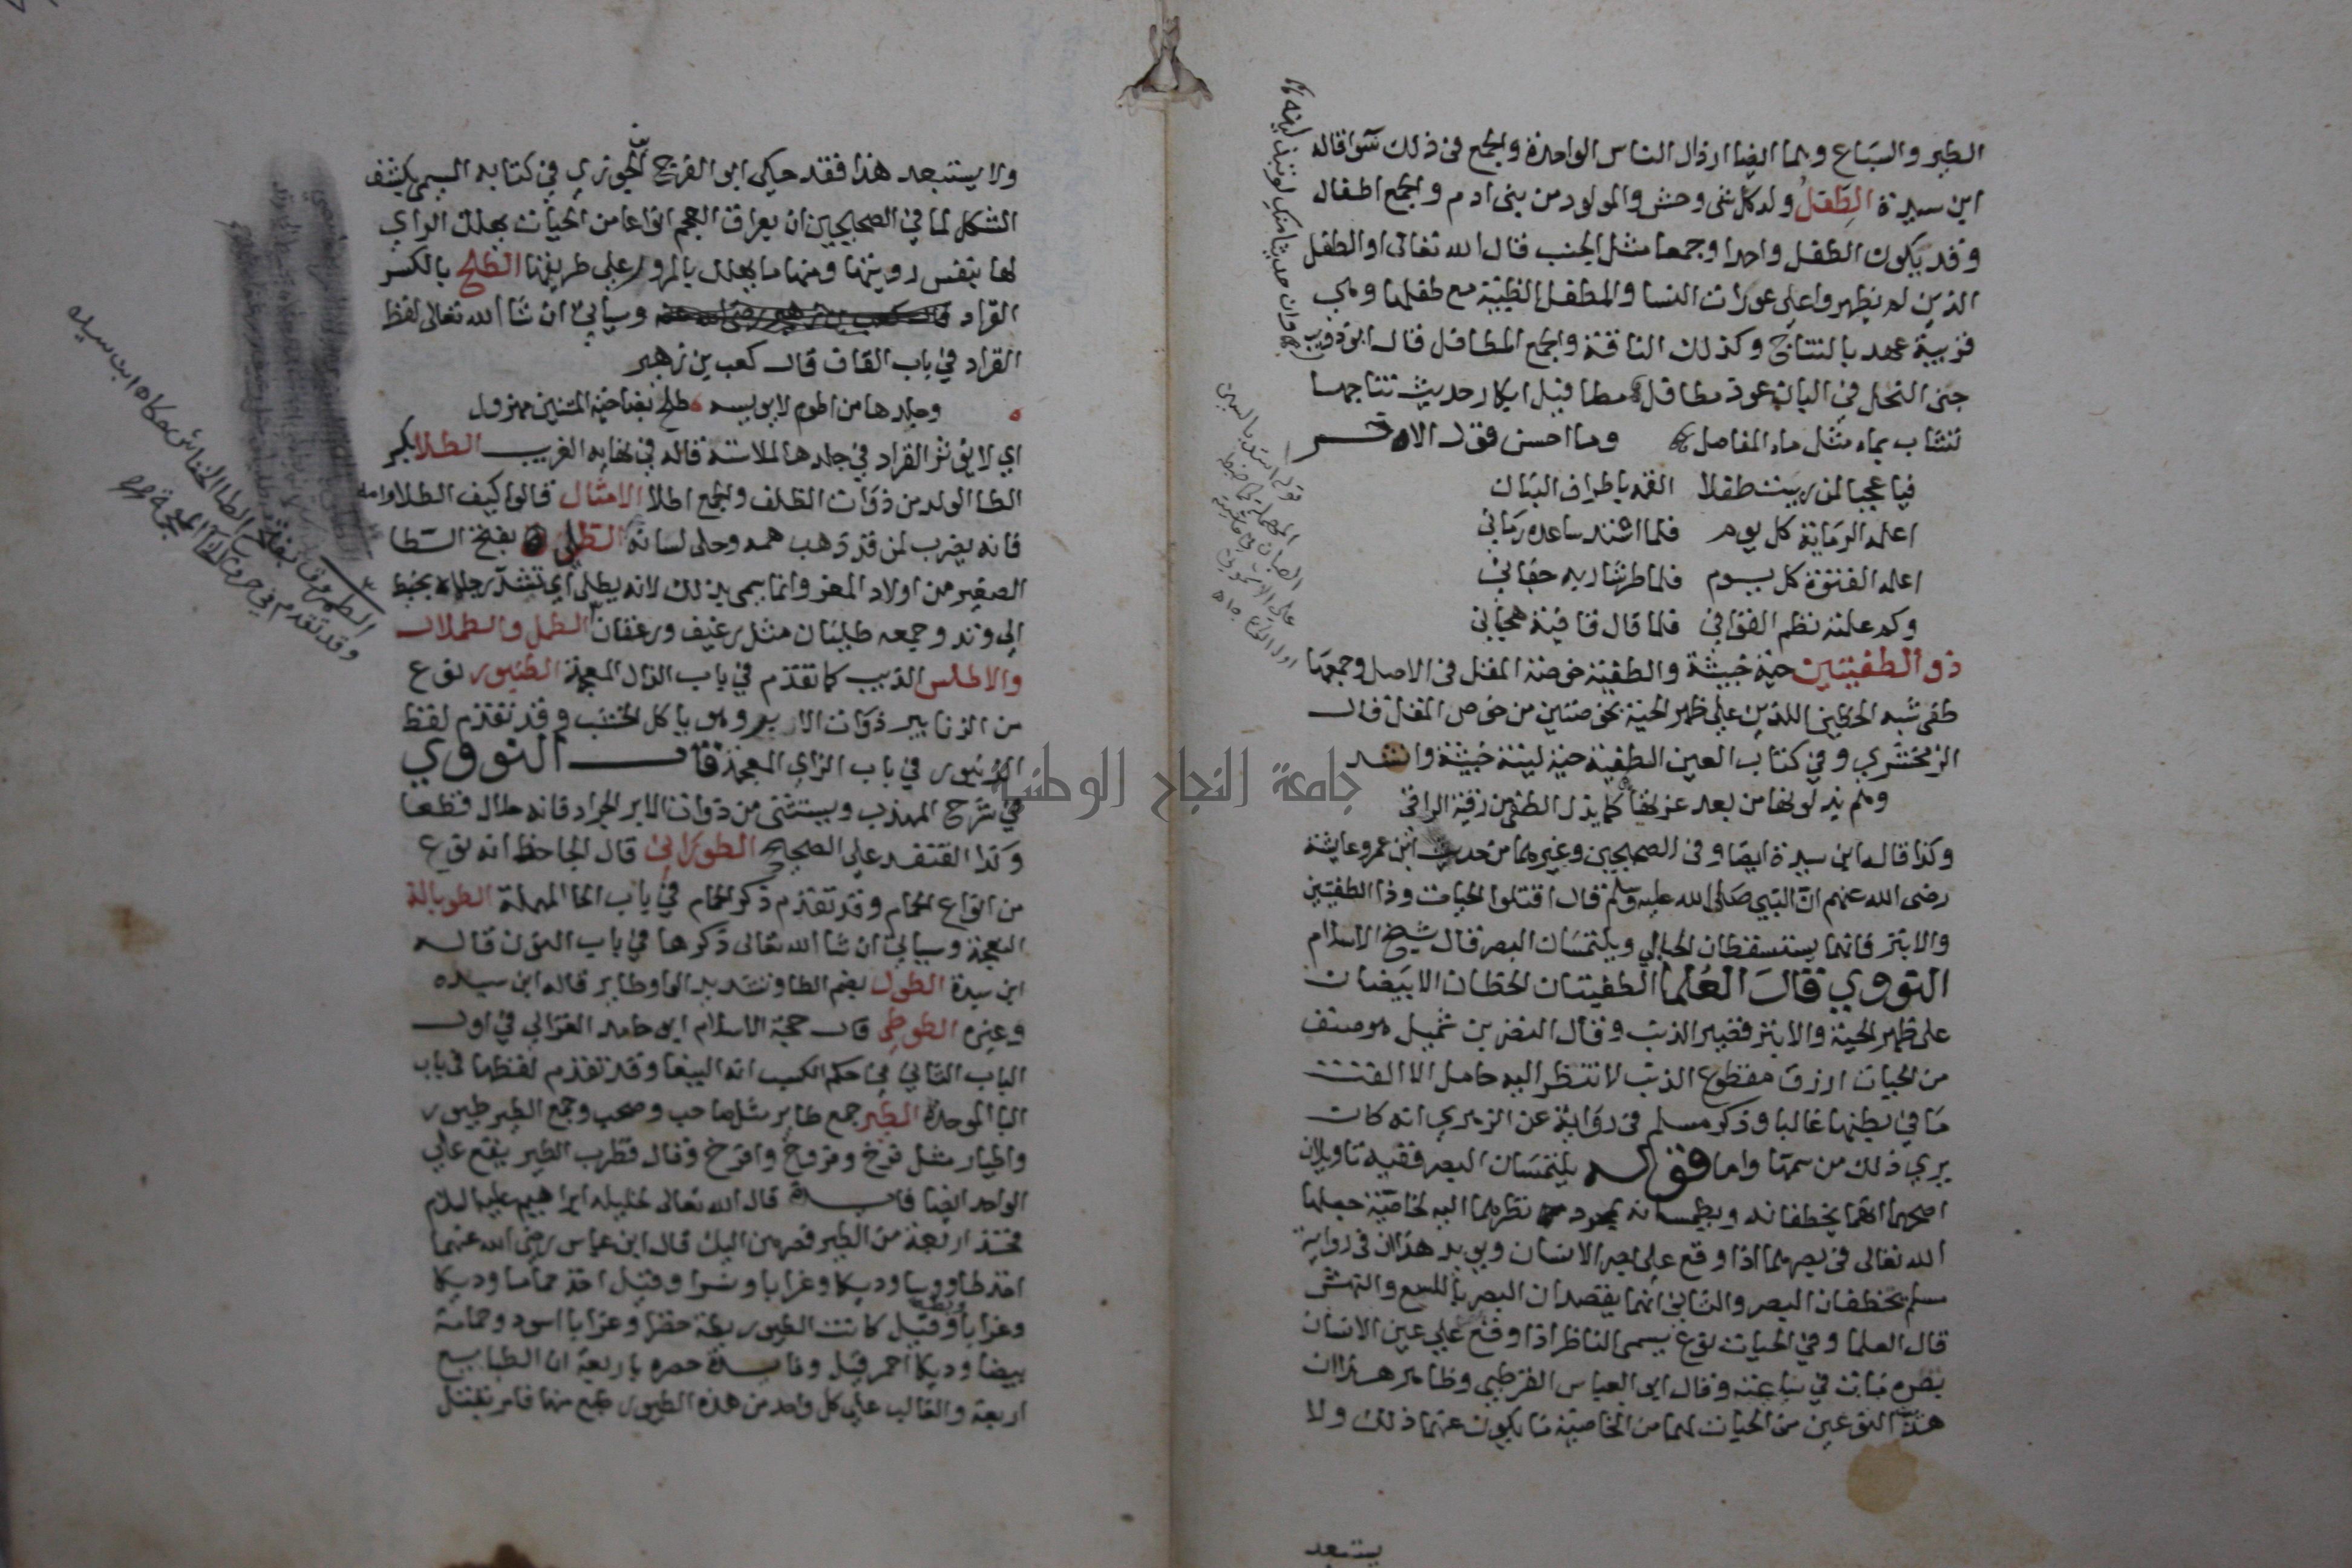 الطير والسباع وهما ايضا ارذال الناس الواحدة والجمع في ذلك سوا قاله
ابن سيدة الطفل ولد كل شى وحش والمولود من بنى ادم والجمع اطفال
وقد يكون الطفل واحدا وجمعا مثل الجنب قال الله تعالى او الطفل
الذين لم يظهروا على عورات النسا والمطفل الظبية مع طفلها وهي
قريبة عهد بالنتاج وكذلك الناقة والجمع المطافل قال ابو ذويب
وان حديثا منك لو تبذلينه
جنى النحل في البان عوذ مطافل مطافيل ابكار حديث نتاجها
تشاب بماء مثل ماء المفاصل وما احسن قول الاخر
فيا عجبا لمن ربيت طفلا القمه باطراف البنان
اعلمه الرماية كل يوم فلما اشتد ساعده رماني
اعلمه الفتوة كل يوم فلما طر شاربه جفاني
وكم علمته نظم القوافي فلما قال قافية هجاني
ذو الطفيتين حية خبيثة والطفية خوصة المقل فى الاصل وجمعها
طفى شبه الخطين اللذين على ظهر الحية بخوصتين من خوص المقل قال
الزمخشري وفي كتاب العين الطفية حية لينة خبيثة وانشد
وهم يذلونها من بعد عزتها كما يذل الطفى من رقية الراقي
وكذا قاله ابن سيدة ايضا وفى الصحيحين وغيرهما من حديث ابن عمر وعايشة
رضى الله عنهم ان النبي صلى الله عليه وسلم قال اقتلوا الحيات وذا الطفيتين
والابتر فانهما يستسقطان الحبالى ويلتمسان البصر قال شيخ الاسلام
النووي قال العلما الطفيتان الخطان الابيضان
على ظهر الحية والابتر قصير الذنب وقال النضر بن شميل هو صنف
من الحيات ازرق مقطوع الذنب لا تنظر اليه حامل الا القت
ما في بطنها غالبا وذكر مسلم فى رواية عن الزهري انه كان
يري ذلك من سمها واما قوله يلتمسان البصر ففيه تاويلان
اصحهما انهما يخطفانه ويطمسانه بمجرد نظرهما اليه لخاصية جعلها
الله تعالى فى بصرهما اذا وقع على بصر الانسان ويويد هذا ان فى رواية
مسلم يخطفان البصر والثانى انهما يقصدان البصر باللسع والنهش
قال العلما وفي الحيات نوع يسمى الناظر اذا وقع على عين الانسان
بصره مات في ساعته وقال ابى العباس القرطبي وظاهر هذا ان
هذين النوعين من الحيات لهما من الخاصية ما يكون عنهما ذلك ولا
يستبعد
ولا يستبعد هذا فقد حكى ابو الفرج ابن الجوزي في كتابه المسمى بكشف
المشكل لما في الصحيحين ان بعراق العجم انواعا من الحيات يهلك الراي
لها بنفس رويتها ومنها ما يهلك بالمرور على طريقها الطلح بالكسر
القراد وسياتي ان شا الله تعالى لفظ
القراد في باب القاف قال كعب بن زهير
وجلدها من اطوم لا يويسه طلح بضاحية المتنين مهزول
اي لا يوثر القراد في جلدها لملاسته قاله في نهاية الغريب الطلا بكسر
الطا الولد من ذوات الظلف والجمع اطلا الامثال قالوا كيف الطلا وامه
فانه يضرب لمن قد ذهب همه وحلى لسانه الطلي بفتح الطا
الصغير من اولاد المعز وانما سمى بذلك لانه يطلى اي تشد رجلاه بخيط
الى وتد وجمعه طليان مثل رغيف ورغفان الطمل والطملال
والاطلس الذيب كما تقدم في باب الذال المعجمة الطنبور نوع
من الزنابير ذوات الابر وهو ياكل الخشب وقد تقدم لفظ
الزنبور في باب الزاى المعجمة قال النووي
في شرح المهذب ويستثنى من ذوات الابر الجراد فانه حلال قطعا
وكذا القنفد على الصحيح الطوراني قال الجاحظ انه نوع
من انواع الحمام وقد تقدم ذكر الحمام في باب الحا المهملة الطوبالة
النعجة وسياتي ان شا الله تعالى ذكرها في باب النون قاله
ابن سيدة الطول بضم الطا وتشديد الواو طاير قاله ابن سيده
وغيره الطوطى قال حجة الاسلام ابى حامد الغزالي في اول
الباب الثاني في حكم الكسب انه الببغا وقد تقدم لفظها فى باب
البا الموحدة الطير جمع طاير مثل صاحب وصحب وجمع الطير طيور
واطيار مثل فرخ وفروخ وافرخ وقال قطرب الطير يقع على
الواحد ايضا فايدة قال الله تعالى لخليله ابراهيم عليه السلام
فخذ اربعة من الطير فصرهن اليك قال ابن عباس رضى الله عنهما
اخذ طاووسا وديكا وغرابا ونسرا وقيل اخذ حماما وديكا
وغرابا وبطة وقيل كانت الطيور بطة خضرا وغرابا اسود وحمامة
بيضا وديكا احمر قيل وفايدة حصره باربعة ان الطبايع
اربعة والغالب على كل واحد من هذه الطيور طبع منها فامر بقتل
الطمروق بفتح الطا الخفاش حكاه ابن سيده
وقد تقدم في حرف الخا المعجمة
جامعة النجاح الوطنية